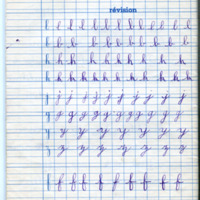 révision
l l l l l l l l l l l l
b b b b b b b b b
h h h h h h h h
k k k k k k k k k
j j j j j j j j j j
g g g g g g g g g g g
y y y y y y y
z z z z z z z
f f f f f f f f